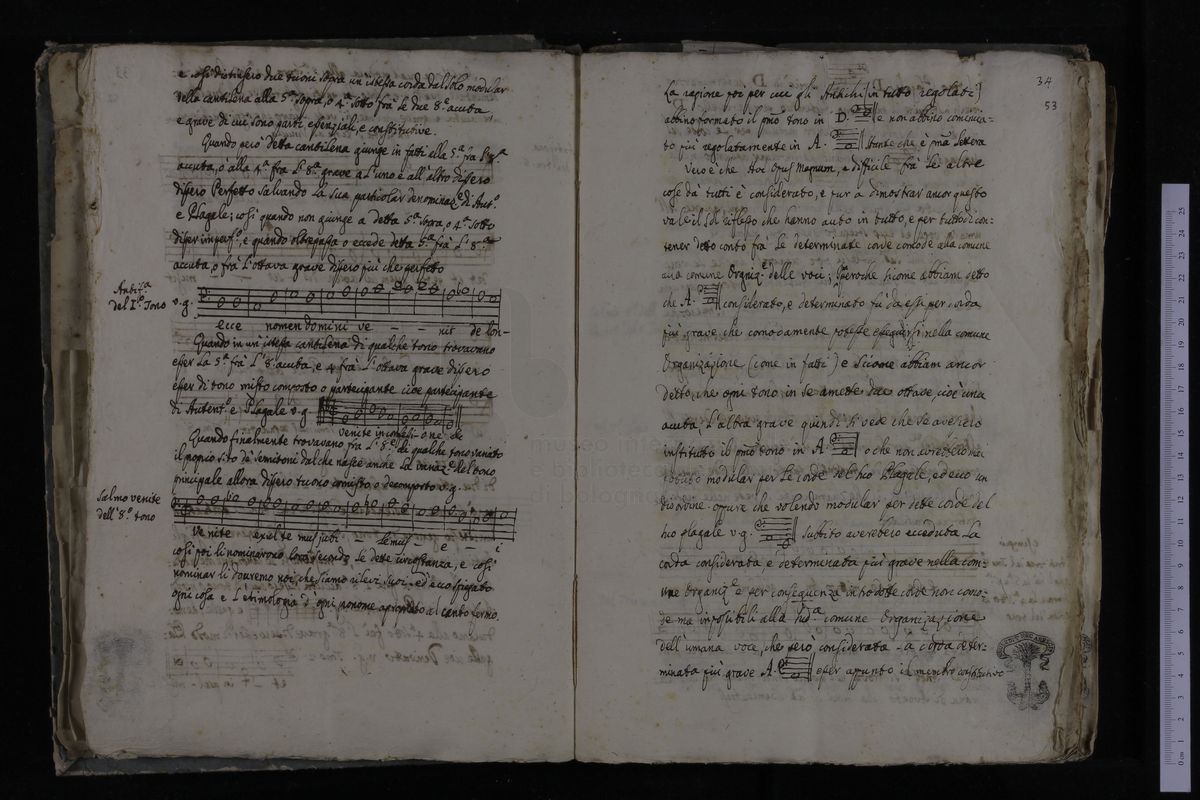 e così distinsero due tuoni sopra un'istessa corda dal solo modular
della cantilena alla 5.ª sopra, o 4.ª sotto frà le due 8.e acuta,
e grave di cui sono parti essenziali, e constitutive.
Quando però detta cantilena giunge in fatti alla 5.ª frà l'8.ª
acuta, o alla 4.ª frà l'8.ª grave a l'uno e all'altro dissero
dissero Perfetto salvando la sua particolar denominaz.e di Aut.o
e Plagale; così quando non giunge a detta 5.ª sopra, o 4.ª sotto
disser imperf.o, e quando oltrepassa o eccede detta 5.ª frà l'8.ª
acuta, o frà l'ottava grave dissero più che perfetto
Antif.ª
del I.º Tono
v.g.
ecce nomen domini ve - - nit de lon-
Quando in un'istessa cantilena di qualche tono trovavano
esser la 5.ª frà l'8.ª acuta, e 4 frà l'ottava grave dissero
esser di tono misto composto o partecipante cioè partecipante
di Autent.o e Plagale v.g.
venite
Quando finalmente trovavano frà l'8.ª di qualche tono variato
il proprio sito de Semitoni dal che nasce anche la variaz.e del tono
principale allora dissero tuono comisto o decomposto v.g.
Salmo venite
dell'8.º tono
Ve nite exul te mus jubi - lemus - e - i
così poi li nominarono loro secondo le dette circostanza, e così
nominar li dovremo noi, che siamo allievi suoi. ed ecco spiegato
ogni cosa e l'etimologia d'ogni nonome apropriato al canto fermo.
34
53
La ragione poi per cui gli Antichi in tutto regolati
abbino formato il p̃mo tono in D. e non abbino comincia-
to più regolatamente in A. stante che è p̃ma lettera
Vero è che Hoc Opus Magnum, e difficile frà le altre
cose da tutti è considerato, e pur a dimostrar ancor questo
vale il sol riflesso che hanno auto in tutto, e per tutto di con-
tener detto conto frà le determinate corde comode alla comune
alla comune Organiz.e delle voci; Imperoche siccome abbiam detto
che A. considerato, e determinato fù da essi per corda
più grave che comodamente potesse eseguirsi nella comune
Organizazione (come in fatti) e siccome abbiam ancor
detto, che ogni tono in se amette due ottave, cioè una
acuta l'altra grave quindi si vede che se avessero
instituito il p̃mo tono in A. o che non avrebbero
potuto modular per le corde del suo Plagale, ed ecco un
disordine. oppure che volendo modular per dette corde del
suo plagale v.g. subbito averebbero ecceduta la
corda considerata e determinata più grave nella com-
une Organiz.e e per consequenza introdotte corde non como-
de ma impossibili alla comune Organizazione
dell'umana voce, che però considerata la corda deter-
minata più grave A. esser appunto il membro constitutivo